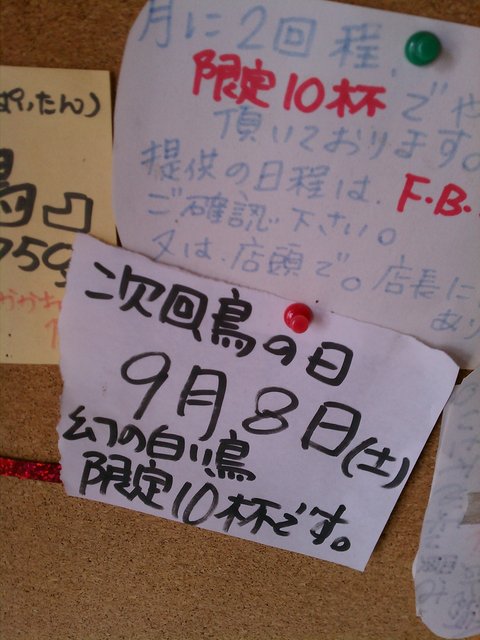 ぱいたん)
月に2回程、
限定10杯でや
頂いております。
提供の日程は、F.B.
ご確認下さい。
又は、店頭で。店長に
あり
次回鳥の日
9月8日(土)
幻の白い鳥
限定10杯です。